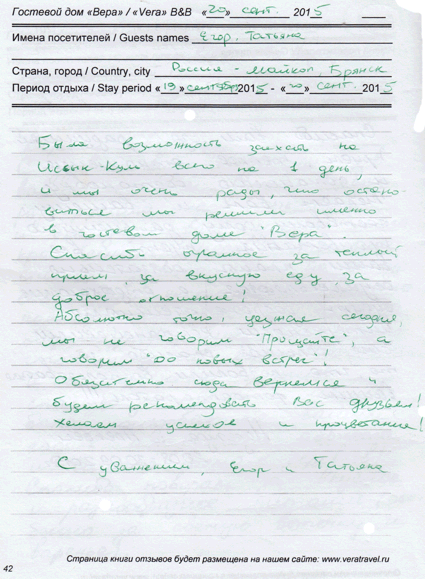 Гостевой дом «Вера» / «Vera» B&B «20» сент. 2015
Имена посетителей / Guests names Егор, Татьяна
Страна, город / Country, city Россия - Майкоп, Брянск
Период отдыха / Stay period «19» сентября 2015 - «20» сент. 2015
Была возможность заехать на
Иссык-Куль всего на 1 день,
и мы очень рады, что остано-
виться мы решили именно
в гостевом доме "Вера".
Спасибо огромное за теплый
прием, за вкусную еду, за
доброе отношение!
Абсолютно точно, уезжая сегодня,
мы не говорим "Прощайте", а
говорим "До новых встреч"!
Обязательно сюда вернемся и
будем рекомендовать Вас друзьям!
Желаем успехов и процветания!
С уважением, Егор и Татьяна
Страница книги отзывов будет размещена на нашем сайте: www.veratravel.ru
42